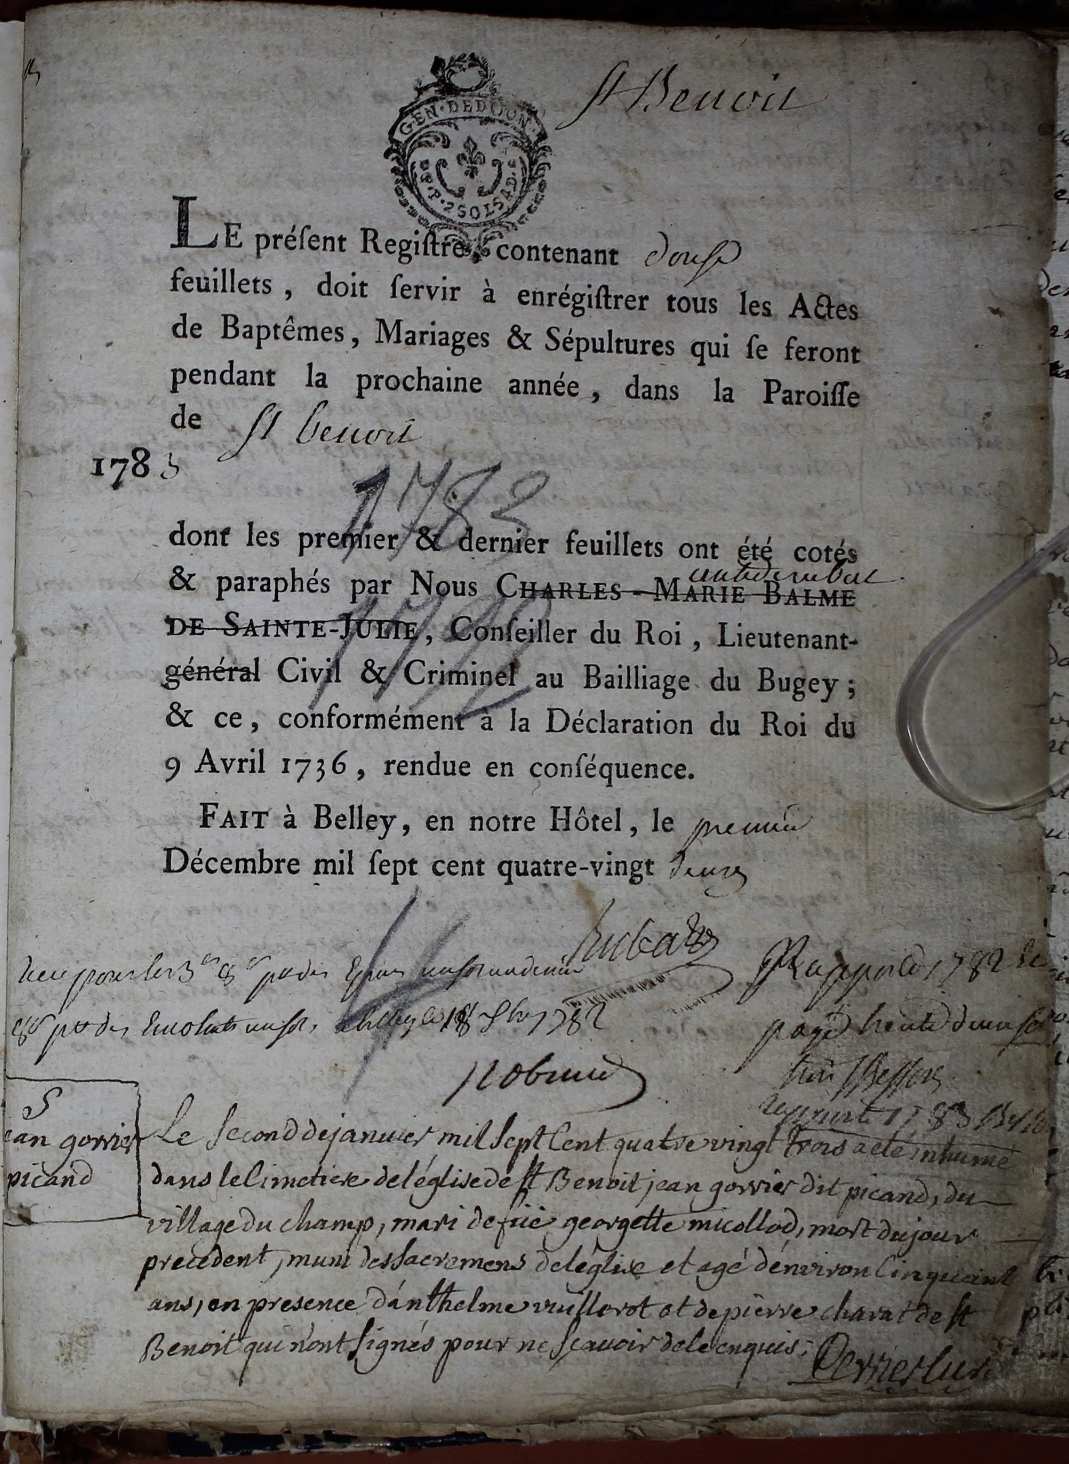 St Benoit
GEN·DEDIJON·
2SOLS
LE préſent Regiſtre, contenant douse
feuillets, doit ſervir à enrégiſtrer tous les Actes
de Baptêmes, Mariages & Sépultures qui ſe feront
pendant la prochaine année, dans la Paroiſſe
de St benoit
1783
1783
dont les premier & dernier feuillets ont été cotés
& paraphés par Nous CHARLES-MARIE BALME
DE SAINTE-JULIE, Conſeiller du Roi, Lieutenant-
général Civil & Criminel au Bailliage du Bugey;
1792
& ce, conformément à la Déclaration du Roi du
9 Avril 1736, rendue en conſéquence.
FAIT à Belley, en notre Hôtel, le premier
Décembre mil ſept cent quatre-vingt deux
1782
1782
S
jean gorrier
picand
Le second de janvier mil sept Cent quatre vingt trois a eté inhumé
dans le Cimetiere de l'église de St Benoit jean gorrier dit picand, du
village du champ, mari de georgette micollod, mort du jour
precedent, muni des Sacremens de l'eglise et agé d'environ Cinquant
ans, en presence d'anthelme vuillerot et de pierre charat de St
Benoit qui n'ont signés pour ne sçavoir de ce enquis;